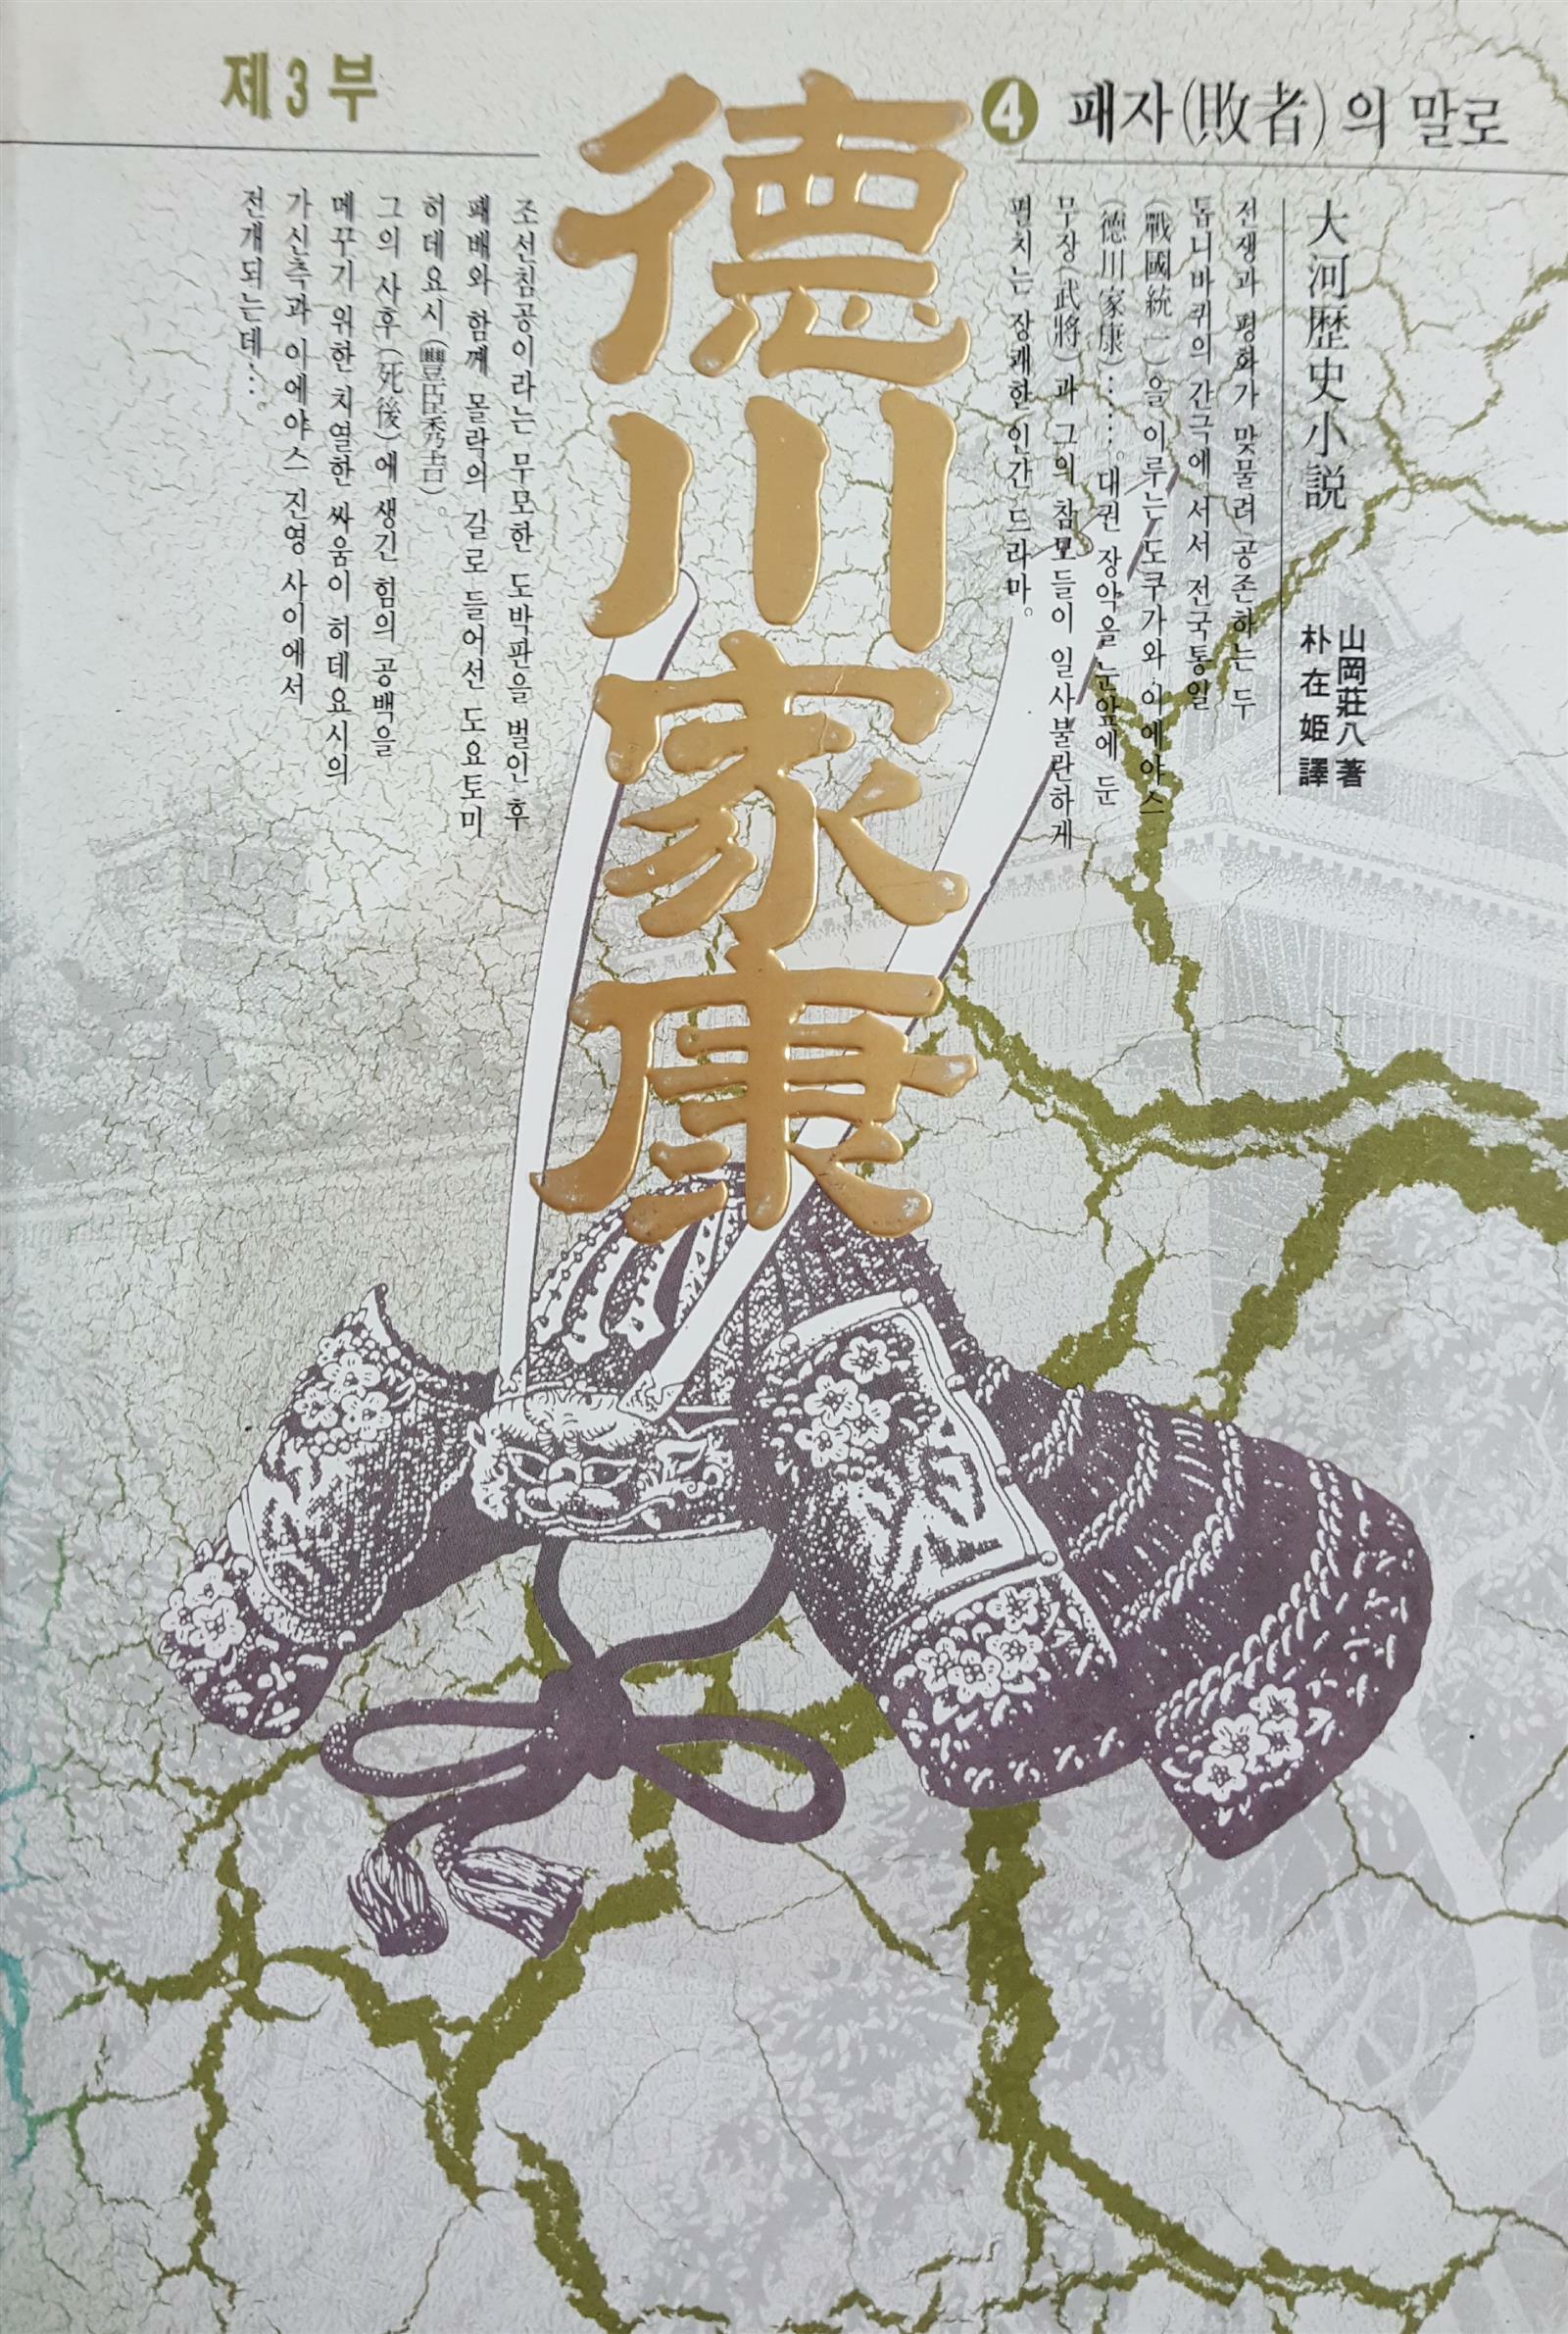 제3부
德川家康
❹ 패자(敗者)의 말로
大河歴史小説
山岡莊八 著
朴在姬 譯
전쟁과 평화가 맞물려 공존하는 두
톱니바퀴의 간극에 서서 전국통일
(戰國統一)을 이루는 도쿠가와 이에야스
(德川家康)……。대권 장악을 눈앞에 둔
무장(武將)과 그의 참모들이 일사불란하게
펼치는 장쾌한 인간 드라마。
조선침공이라는 무모한 도박판을 벌인 후
패배와 함께 몰락의 길로 들어선 도요토미
히데요시(豐臣秀吉)。
그의 사후(死後)에 생긴 힘의 공백을
메꾸기 위한 치열한 싸움이 히데요시의
가신측과 이에야스 진영 사이에서
전개되는데…。